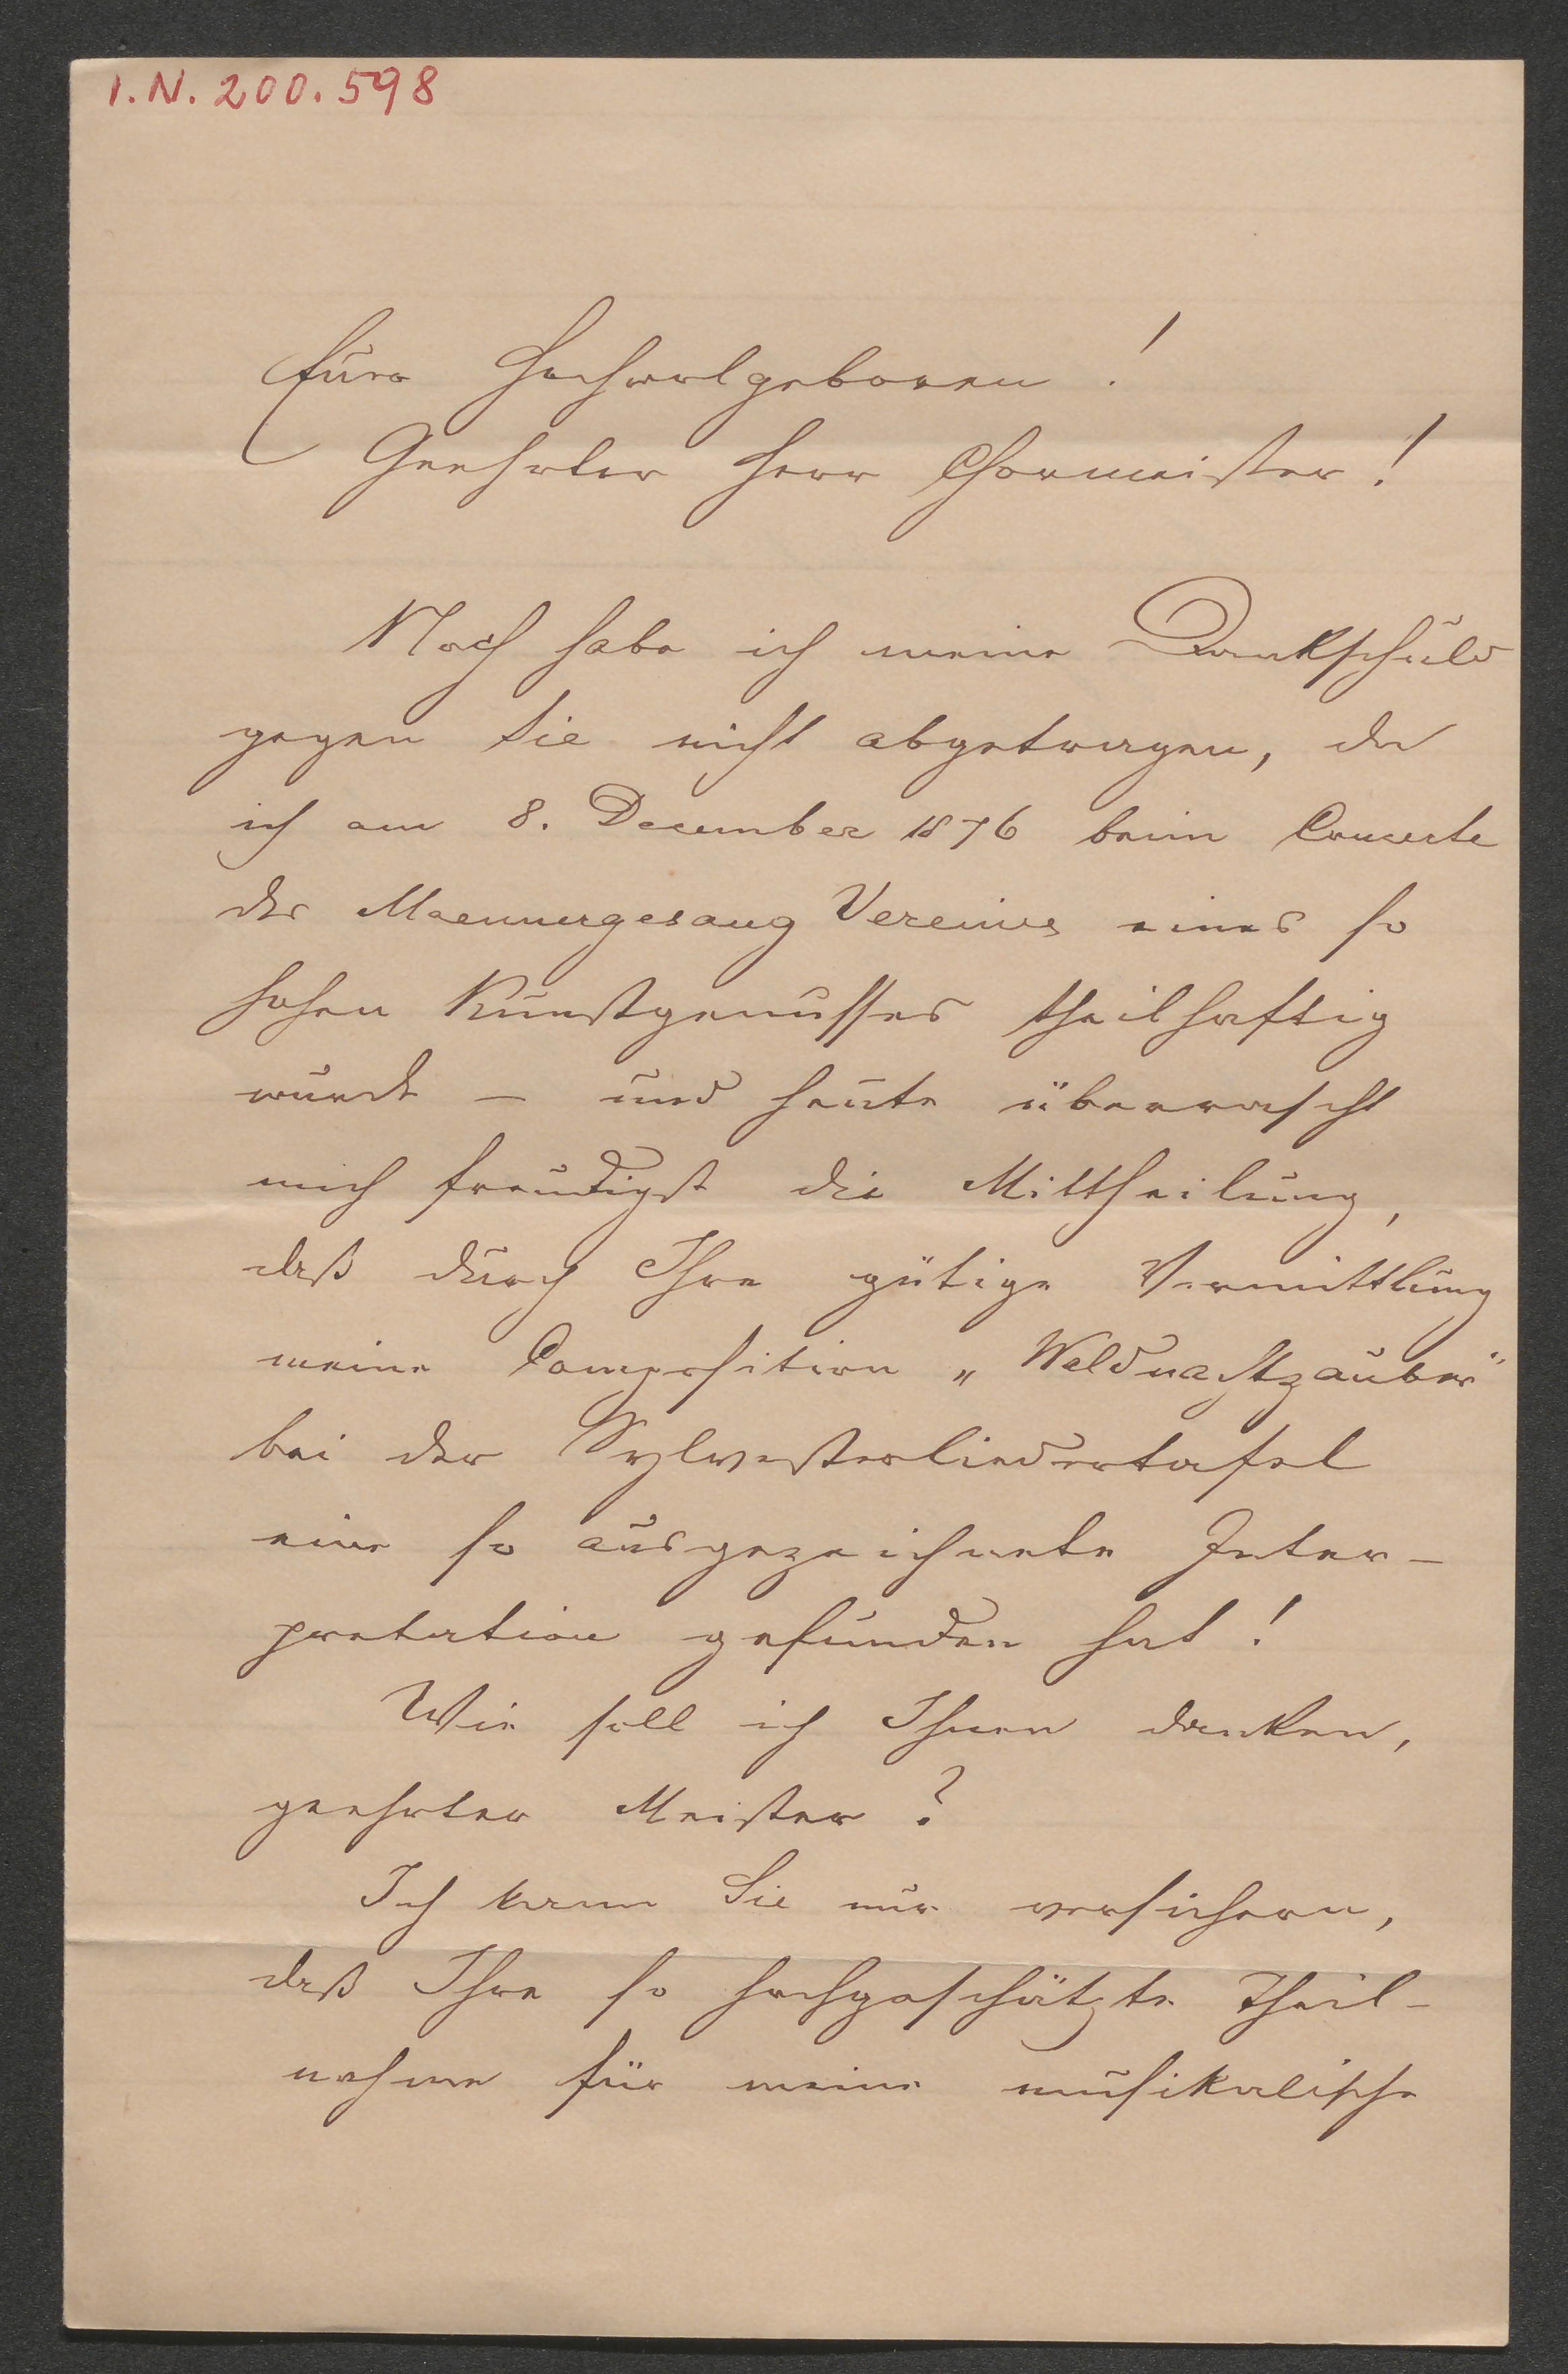 I.N. 200.598
Euer Hochwolgeboren!
Geehrter Herr Chormeister!
Noch habe ich meine Dankschuld
gegen Sie nicht abgetragen, da
ich am 8. December 1876 beim Concerte
des Maennergesang Vereines eines so
hohen Kunstgenusses theilhaftig
wurde – und heute überrascht
mich freudigst die Mittheilung,
daß durch Ihre gütige Vermittlung
meine Composition „Waldnachtzauber"
bei der Sylvesterliedertafel
eine so ausgezeichnete Inter-
pretation gefunden hat!
Wie soll ich Ihnen danken,
geehrter Meister?
Ich kann Sie nur versichern,
daß Ihre so hochgeschätzte Theil-
nahme für meine musikalische